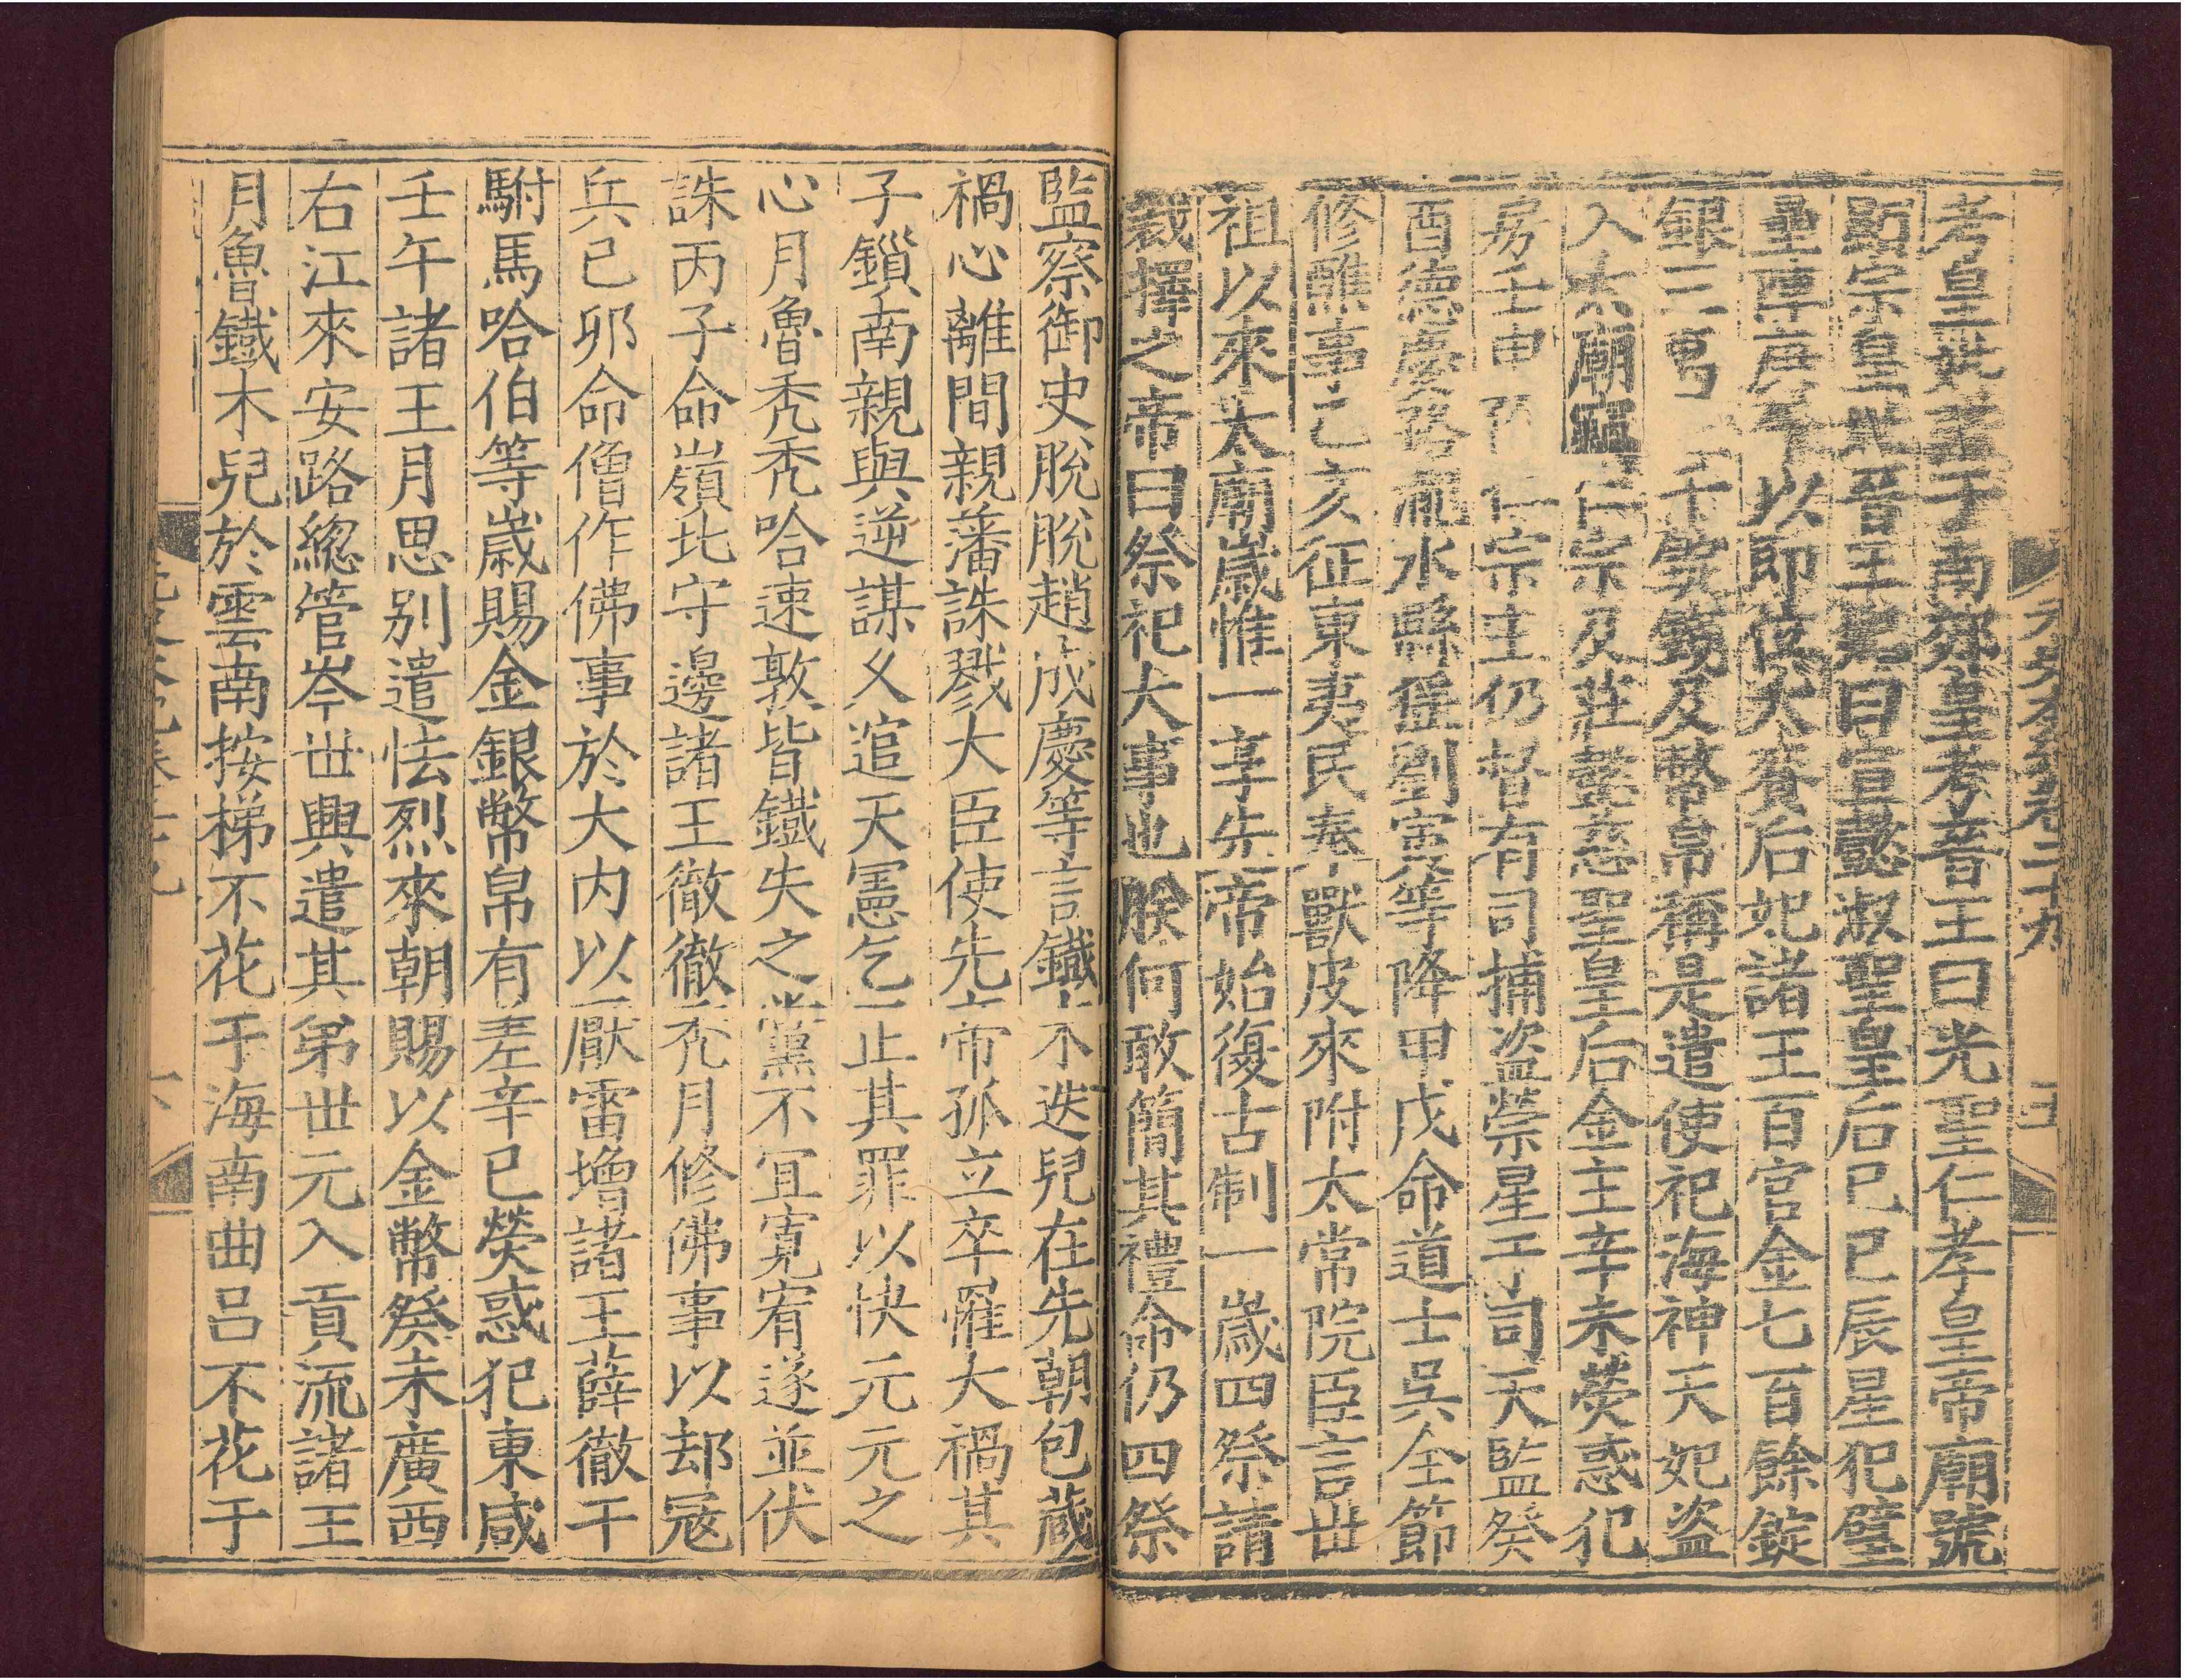 考皇妣䓁于南郊皇考晉王曰光聖仁孝皇帝廟號
顯宗皇妣晉王妃曰宣懿淑聖皇后己巳辰星犯壁
壘陣庚午以即位大賚后妃諸王百官金七百餘錠
銀三萬 千錠錢及幣帛稱是遣使祀海神天妃盜
入太廟竊仁宗及莊懿慈聖皇后金主辛未熒惑犯
房壬申作仁宗主仍督有司捕盜禜星于司天監癸
酉德慶路瀧水縣猺劉寅等降甲戌命道士吳全節
修醮事乙亥征東夷民奉獸皮來附太常院臣言世
祖以來太廟歲惟一享先帝始復古制一歲四祭請
裁擇之帝曰祭祀大事也朕何敢簡其禮命仍四祭
監察御史脫脫趙成慶等言鐵木迭兒在先朝包藏
禍心離間親藩誅戮大臣使先帝孤立卒罹大禍其
子鎖南親與逆謀乂逭天憲乞正其罪以快元元之
心月魯禿禿哈速敦皆鐵失之黨不宜寬宥遂並伏
誅丙子命嶺北守邊諸王徹徹禿月修佛事以却寇
兵已卯命僧作佛事於大内以厭雷增諸王薛徹干
駙馬哈伯等歲賜金銀幣帛有差辛巳熒惑犯東咸
壬午諸王月思別遣怯烈來朝賜以金幣癸未廣西
右江來安路總管岑世興遣其弟世元入貢流諸王
月魯鐵木兒於雲南按梯不花于海南曲呂不花于